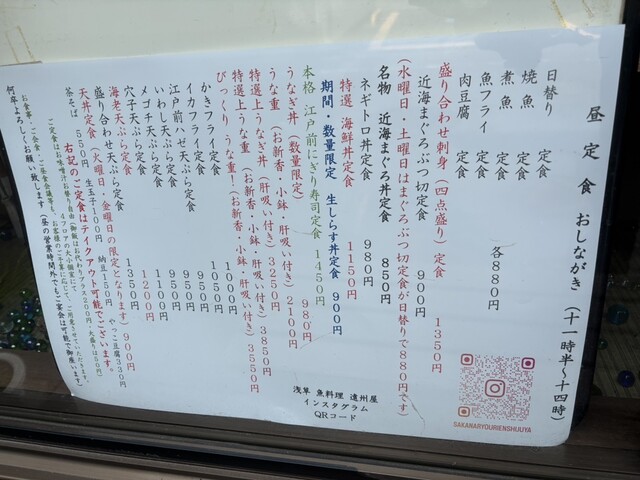 昼定食 おしながき (十一時半～十四時)
日替り 定食
焼魚 定食
煮魚 定食
魚フライ 定食
肉豆腐 定食
各880円
盛り合わせ刺身(四点盛り)定食 1350円
近海まぐろぶつ切定食 900円
(水曜日・土曜日はまぐろぶつ切定食が日替りで880円です)
名物 近海まぐろ丼定食 850円
ネギトロ丼定食 980円
特選 海鮮丼定食 1150円
期間・数量限定 生しらす丼定食 900円
本格 江戸前にぎり寿司定食 1450円
うなぎ丼(数量限定) 980円
うな重(お新香・小鉢・肝吸い付き)2100円
特選上うなぎ丼(肝吸い付き)3250円
特選上うな重(お新香・小鉢・肝吸い付き)3850円
びっくりうな重!(お新香・小鉢・肝吸い付き)3550円
かきフライ定食 1000円
イカフライ定食 1050円
江戸前ハゼ天ぷら定食 950円
いわし天ぷら定食 950円
メゴチ天ぷら定食 950円
穴子天ぷら定食 1100円
海老天ぷら定食 1200円
盛り合わせ天ぷら定食 1350円
天丼定食(火曜日・金曜日の限定となります)900円
茶そば 550円 生玉子110円 納豆150円 やっこ豆腐330円
右記のご定食はテイクアウト可能でございます。
何卒よろしくお願い致します(昼の営業時間外でもご会食は可能で御座います。)
浅草 魚料理 遠州屋
インスタグラム
QRコード
SAKANARYOURIENSHUUYA